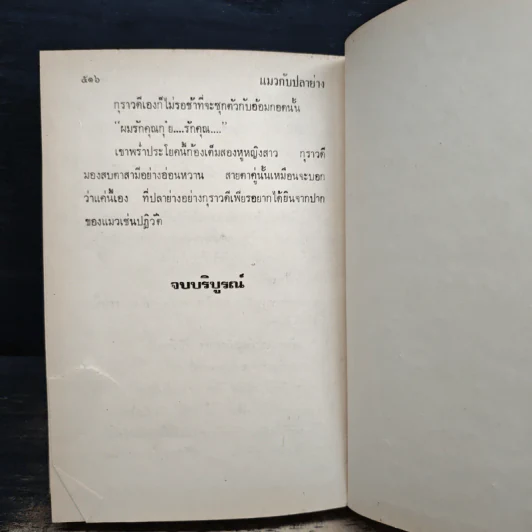 ๕๑๖ แมวกับปลาย่าง
กุราวดีเองก็ไม่รอช้าที่จะซุกตัวกับอ้อมกอดนั้น
"ผมรักคุณกุ้ย....รักคุณ...."
เขาพร่ำประโยคนี้ก้องเต็มสองหูหญิงสาว กุราวดี
มองสบตาสามีอย่างอ่อนหวาน สายตาคู่นั้นเหมือนจะบอก
ว่าแค่นี้เอง ที่ปลาย่างอย่างกุราวดีเพียรอยากได้ยินจากปาก
ของแมวเช่นปฏิวัติ
จบบริบูรณ์